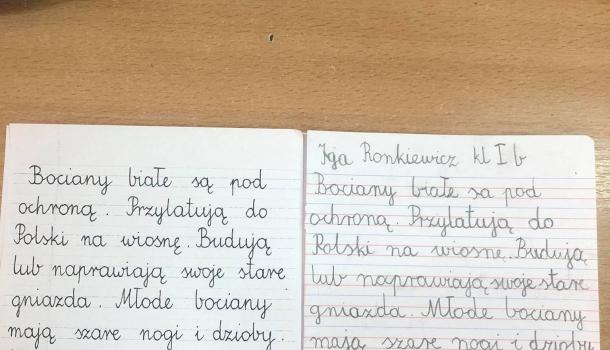 Bociany białe są pod
ochroną. Przylatują do
Polski na wiosnę. Budują
lub naprawiają swoje stare
gniazda. Młode bociany
mają szare nogi i dzioby.
Iga Ronkiewicz kl I b
Bociany białe sa pod
ochroną. Przylatują do
Polski na wiosnę. Budują
lub naprawiają swoje stare
gniazda. Młode bociany
mają szare nogi i dzioby